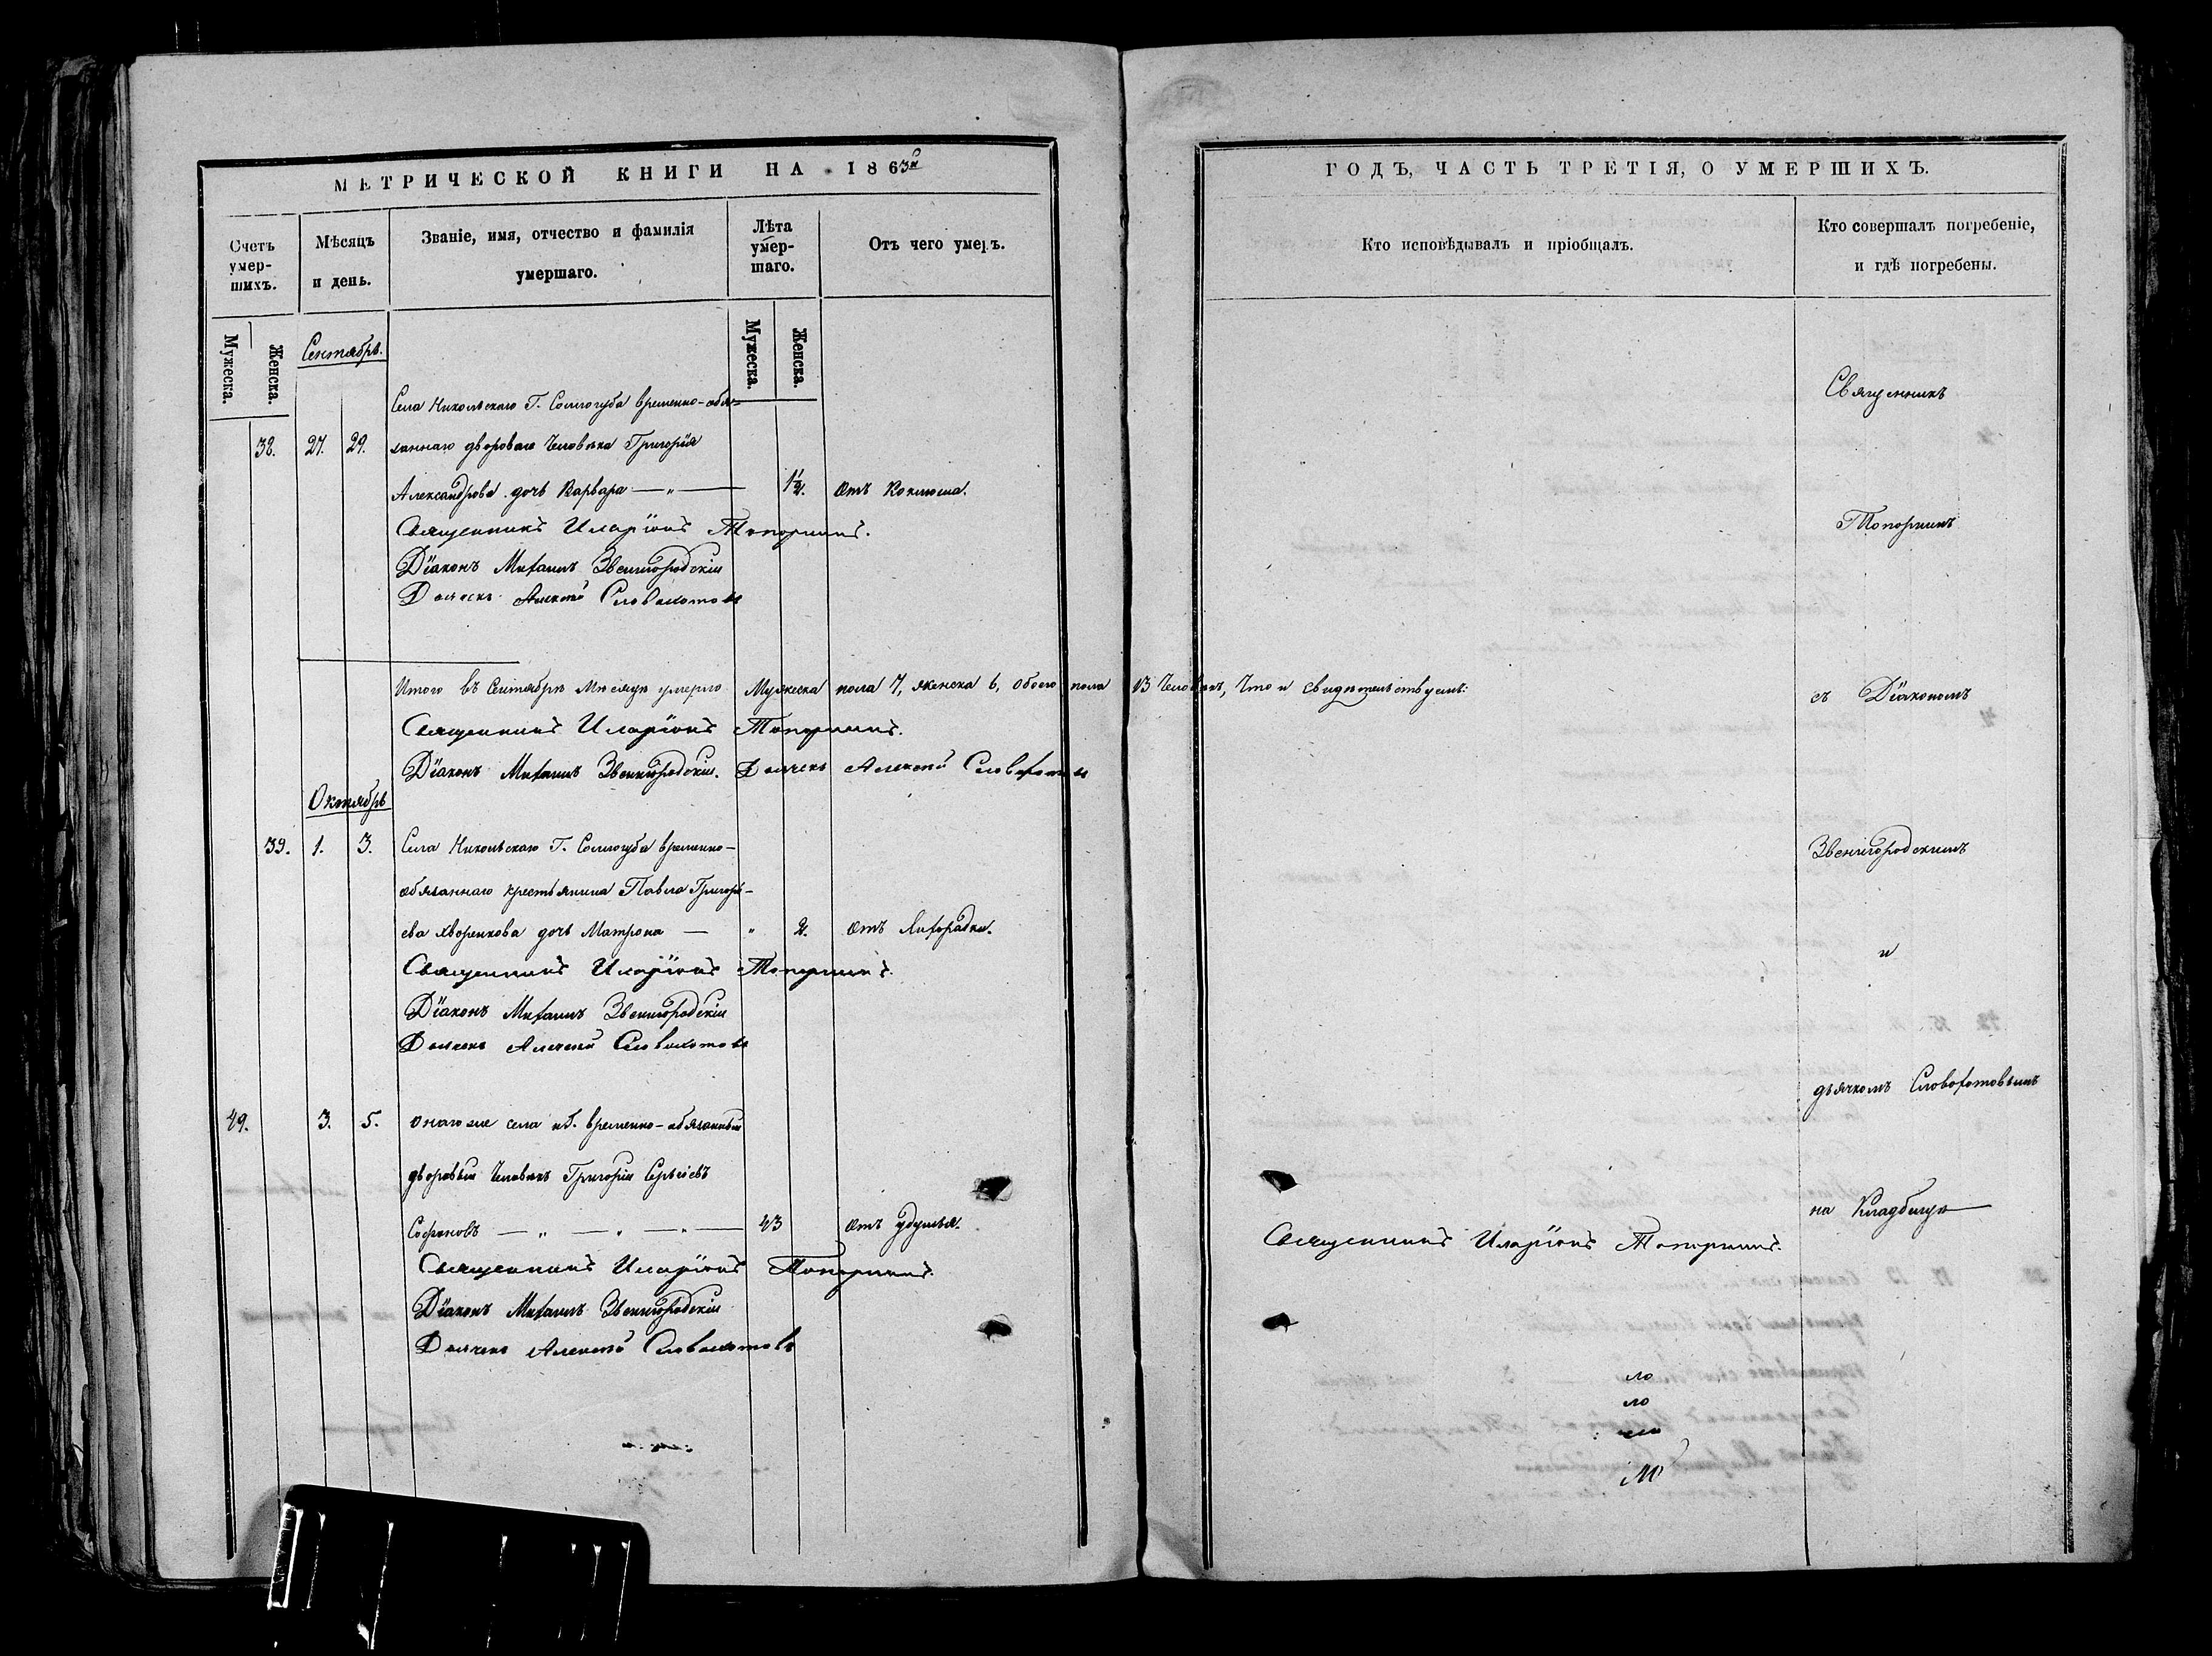 МЕТРИЧЕСКОЙ КНИГИ НА 1863й
Счетъ умер-шихъ.
Мѣсяцъ и день.
Званіе, имя, отчество и фамилія умершаго.
Лѣта умер-шаго.
Отъ чего умеръ.
Мужеска.
Женска.
Мужеска.
Женска.
Сентябрь.
Села Никольскаго Г. Соллогуба временно-обя-
38. 27. 29. заннаго двороваго человѣка Григорія
Александрова дочь Варвара — „ — 1½. Отъ Коклюша.
Священникъ Иларіонъ Топорнинъ.
Діаконъ Михаилъ Звенигородскій
Дьячекъ Алексѣй Словохотовъ
Итого въ Сентябрѣ Мѣсяцѣ умерло Мужеска пола 7, женска 6, обоего пола 13 Человѣкъ, Что и свидѣтельствуемъ:
Священникъ Иларіонъ Топорнинъ.
Діаконъ Михаилъ Звенигородскій. Дьячекъ Алексѣй Словохотовъ
Октябрь
39. 1. 3. Села Никольскаго Г. Соллогуба временно-
обязаннаго крестьянина Павла Григорь-
ева Хворенкова дочь Матрона — „ 2. Отъ Лихорадки.
Священникъ Иларіонъ Топорнинъ.
Діаконъ Михаилъ Звенигородскій
Дьячекъ Алексѣй Словохотовъ
49. 3. 5. Онаго же села и Г. временно-обязанный
дворовый Человѣкъ Григорій Сергѣевъ
Софроновъ — „ — „ — „ — 43 Отъ удушья.
Священникъ Иларіонъ Топорнинъ.
Діаконъ Михаилъ Звенигородскій
Дьячекъ Алексѣй Словохотовъ
ГОДЪ, ЧАСТЬ ТРЕТІЯ, О УМЕРШИХЪ.
Кто исповѣдывалъ и пріобщалъ.
Кто совершалъ погребеніе, и гдѣ погребены.
Священникъ
Топорнинъ
съ Діакономъ
Звенигородскимъ
и
дьячкомъ Словохотовымъ
на Кладбищѣ
Священникъ Иларіонъ Топорнинъ.